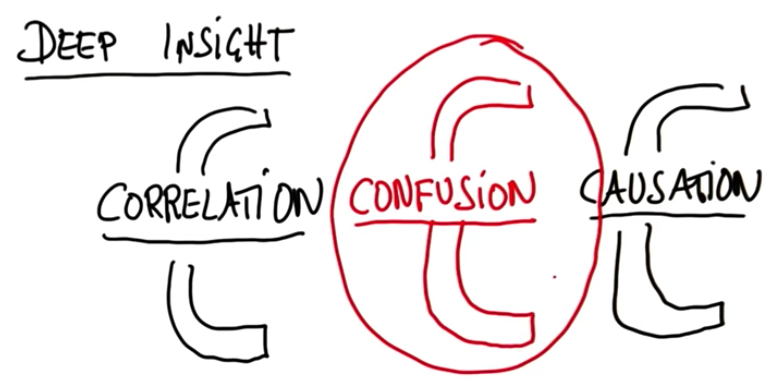 DEEP INSIGHT
CORRELATION CONFUSION CAUSATION